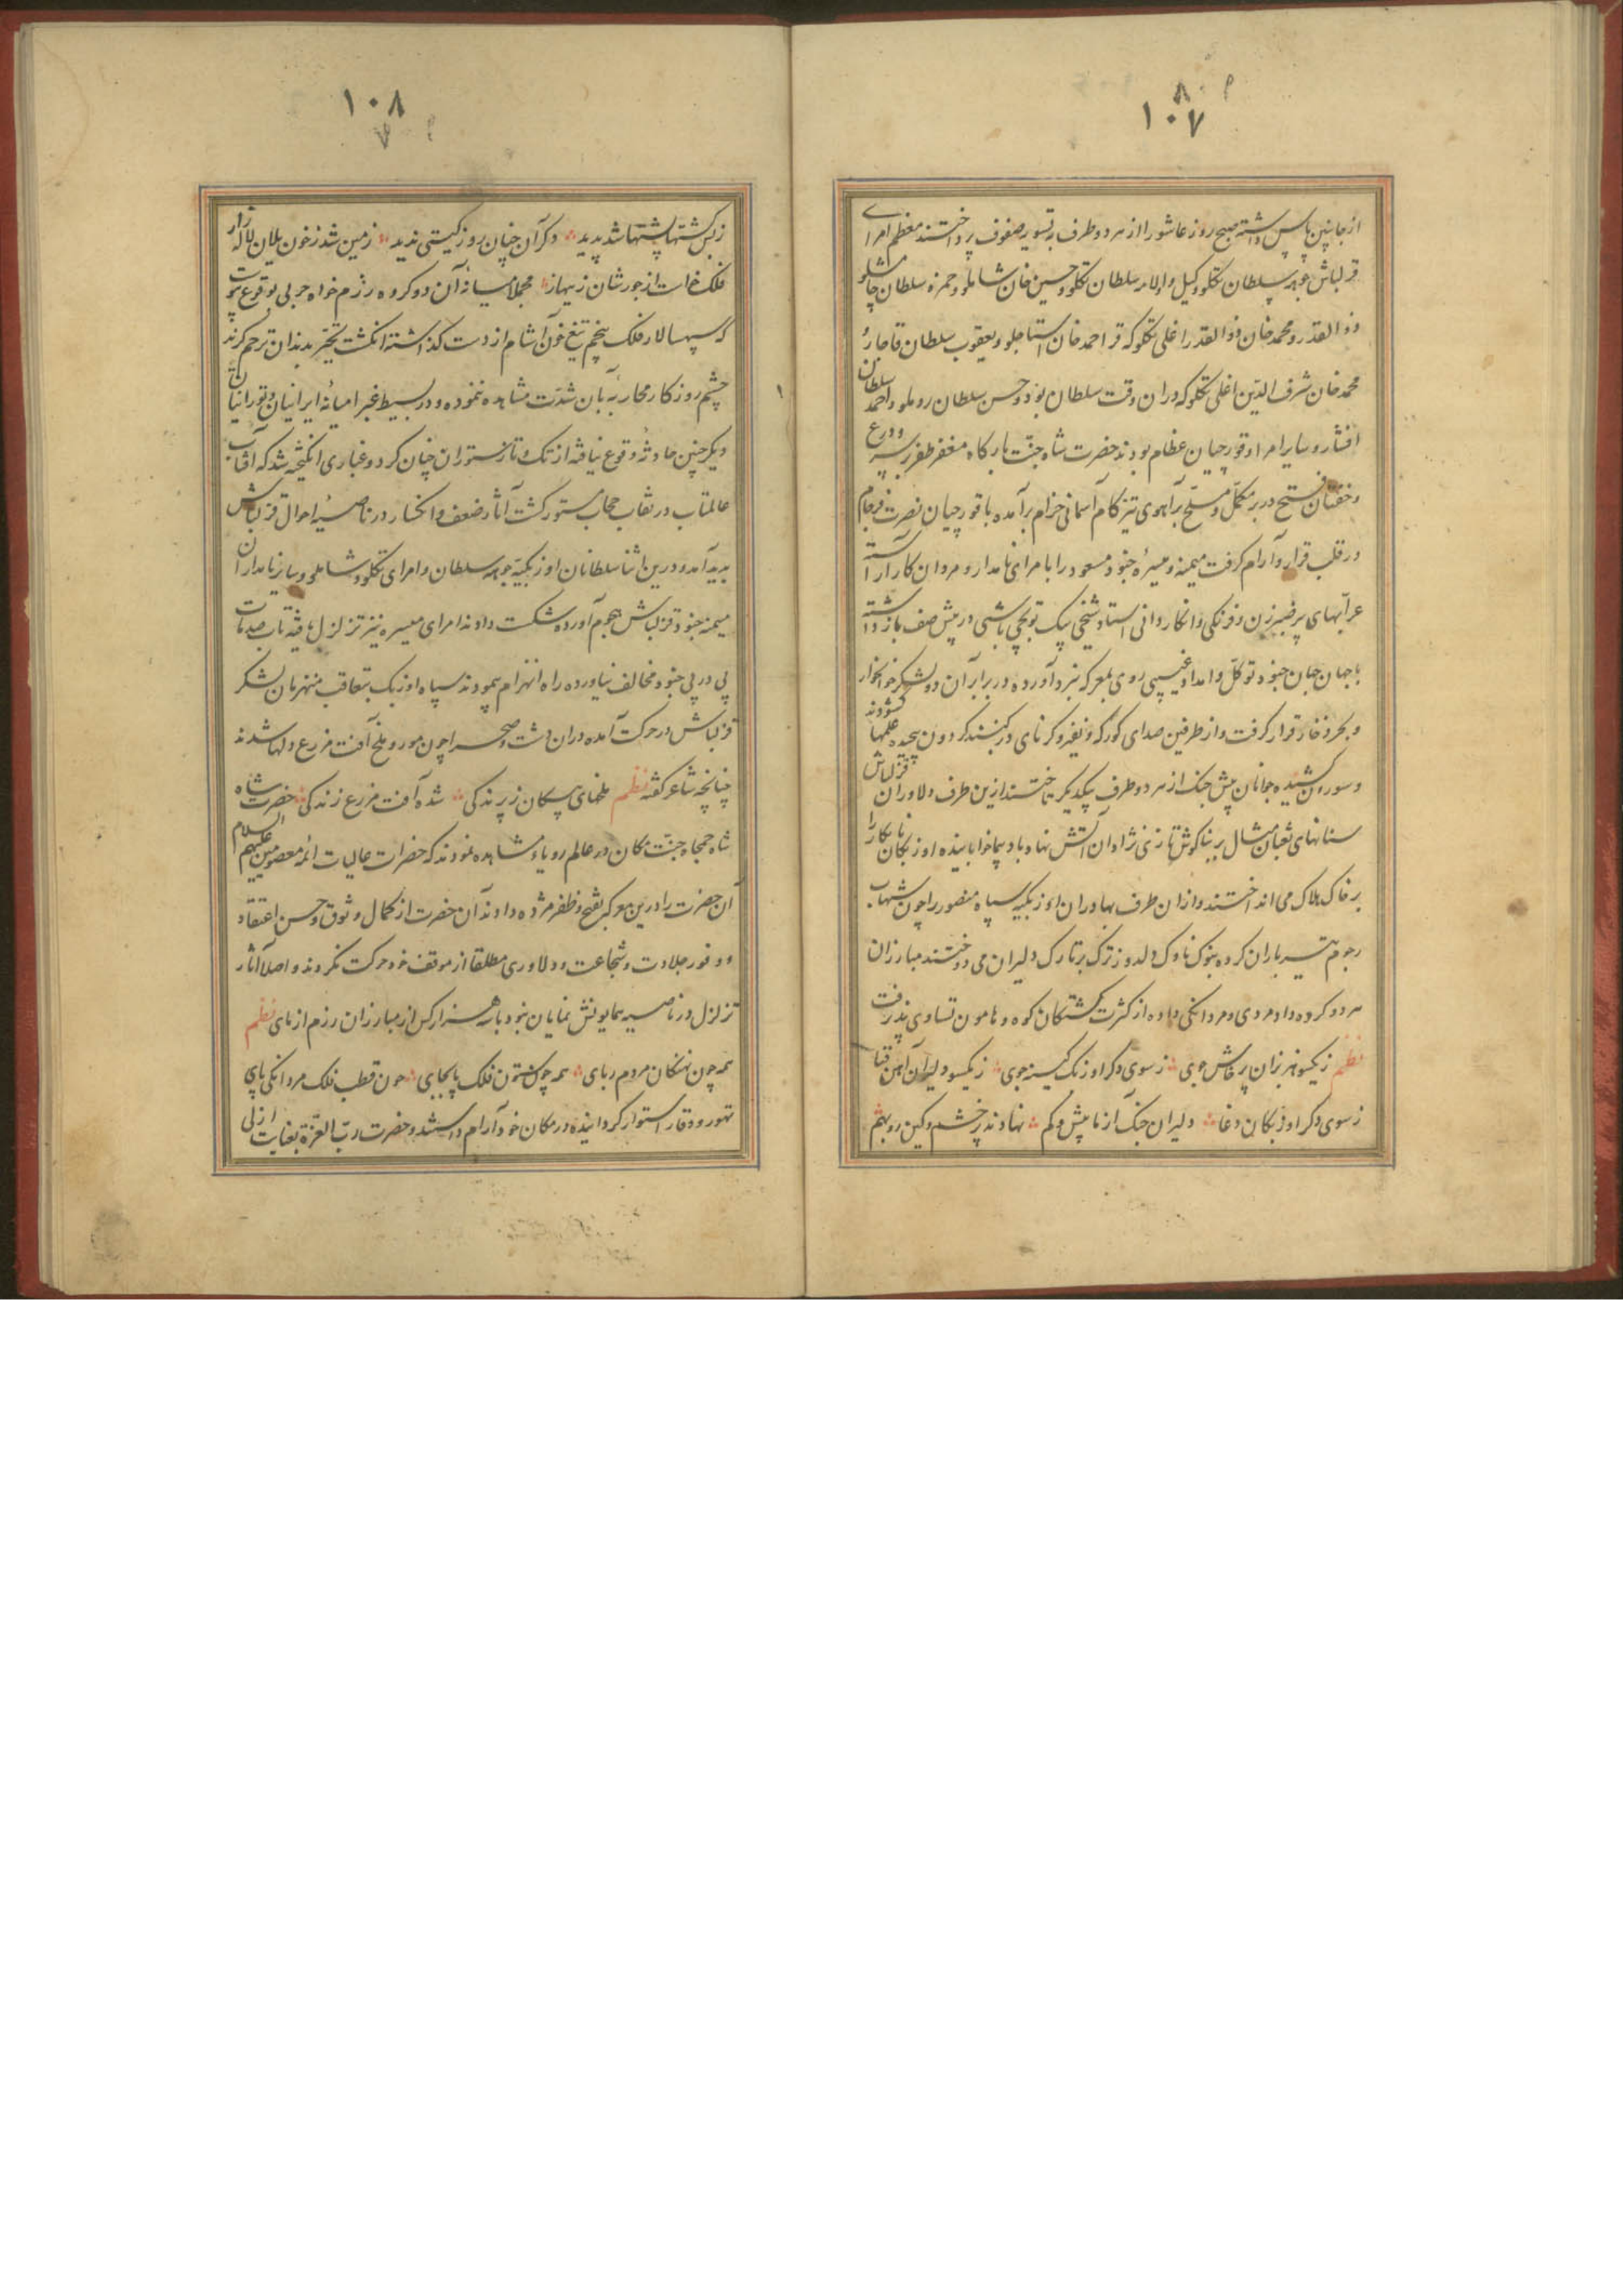 ١٠٧
از جانبین پاس داشته صبح روز عاشورا از هر دو طرف بتسویه صفوف پرداختند معظم امرای
قزلباش چوهه سلطان تکلو وکیل و اولامه سلطان تکلو و حسین خان شاملو و حمزه سلطان چامشلو
ذوالقدر و محمد خان ذوالقدر اغلی تکلو که قرا احمد خان استاجلو و یعقوب سلطان قاجار و
محمد خان شرف الدین اغلی تکلو که دران وقت سلطان بود و حسن سلطان روملو و احمد سلطان
افشار و سایر امرا و قورچیان عظام بودند حضرت شاه جنت بارگاه مغفر ظفر بر سر و درع
و خفتان فتح در بر مکمل و مسلح بر آهوی تیزکام آسمانی خرام برآمده با قورچیان نصرت فرجام
در قلب قرار و آرام گرفت میمنه و میسرهٔ جنود مسعود را با مرای نامدار و مردان کار آراسته
عرابهای پر ضربزن و فرنگی را بکاردانی استاد شیخی بیک توپچی باشی در پیش صف بازداشته
با جهان جهان جنود توکل و امداد غیبی روی بمعرکه نبرد آورده در برابر آن دو لشکر خونخوار
و بحر ذخار قرار گرفت و از طرفین صدای کورکه و نفیر و کرنای در گنبد گردون پیچیده علمها گشودند
و سورن کشیده جوانان پیش جنگ از هر دو طرف بیکدیگر تاختند ازین طرف دلاوران قزلباش
سنانهای ثعبان مثال بر بناگوش تازی نژادان آتش نهاد بادپیما خوابانیده اوزبکان نابکار را
بر خاک هلاک می انداختند و ازان طرف بهادران اوزبکیه سپاه منصور را چون شهاب
رجوم تیر باران کرده بنوک ناوک دلدوز ترک بر تارک دلیران می دوختند مبارزان
هر دو گروه داد مردی و مردانگی داده از کثرت کشتگان کوه و هامون تساوی پذیرفت
نظم زیکسو هزبران پرخاش جوی زسوی دگر اوزبک کینه جوی زیکسو دلیران آهن قبا
زسوی دگر اوزبکان دغا دلیران جنگ آزما بیش و کم نهادند پر خشم و کین رو بهم
١٠٨
زبس کشتها پشتها شد پدید دگر آن چنان روز گیتی ندید زمین شد زخون یلان لاله زار
فلک خواست از جورشان زینهار مجملا میانهٔ آن دو گروه رزم خواه حربی بوقوع پیوست
که سپهسالار فلک پنجم تیغ خون آشام از دست گذاشته انگشت تحیر بدندان ترحم گزید
چشم روزگار محاربهٔ بآن شدت مشاهده ننموده و در بسیط غبرا میانهٔ ایرانیان و تورانیان
دیگر چنین حادثه وقوع نیافته از تک و تاز ستوران چنان گرد و غباری انگیخته شد که آفتاب
عالمتاب در نقاب حجاب مستور گشت آثار ضعف و انکسار در ناصیهٔ احوال قزلباش
پدید آمد و درین اثنا سلطانان اوزبکیه بچوهه سلطان و امرای تکلو و شاملو و سایر نامداران
میمنه جنود قزلباش هجوم آورده شکست دادند امرای میسره نیز تزلزل یافته تاب صدمات
پی در پی جنود مخالف نیاورده راه انهزام پیمودند سپاه اوزبک بتعاقب منهزمان لشکر
قزلباش در حرکت آمده دران دشت و صحرا چون مور و ملخ آفت مزرع دلها شدند
چنانچه شاعر گفته نظم ملخهای پیکان ز پرندگی شده آفت مزرع زندگی حضرت شاه
شاه جمجاه جنت مکان در عالم رویا مشاهده نمودند که حضرات عالیات ائمه معصومین علیهم السلام
آن حضرت را درین معرکه بفتح و ظفر مژده دادند آن حضرت از کمال وثوق و حسن اعتقاد
و وفور جلادت و شجاعت و دلاوری مطلقا از موقف خود حرکت نکردند و اصلا آثار
تزلزل در ناصیه همایونش نمایان نبود با هزار کس از مبارزان رزم ازمای نظم
همه چون نهنگان مردم ربای همه چون ستون فلک پابجای چون قطب فلک مردانگی پای
تهور و وقار استوار گردانیده در مکان خود آرام داشتند و حضرت رب العزة بعنایت ازلی